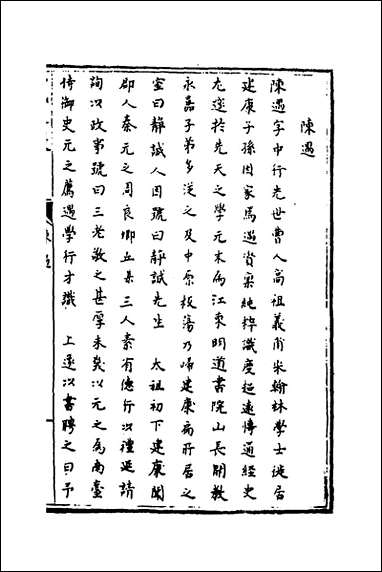 陳遇
陳遇字中行先世曹人高祖義甫宋翰林學士徙居
建康子孫因家焉遇資稟純粹識度超遠博通經史
尤邃於先天之學元末為江東明道書院山長開教
永嘉子弟多從之及中原板蕩乃歸建康扁所居之
室曰靜誠人因號曰靜誠先生　太祖初下建康聞
郡人秦元之周良卿五某三人素有德行以禮延請
詢以政事號曰三老敬之甚厚未幾以元之為南臺
侍御史元之薦遇學行才識　上遂以書聘之曰予